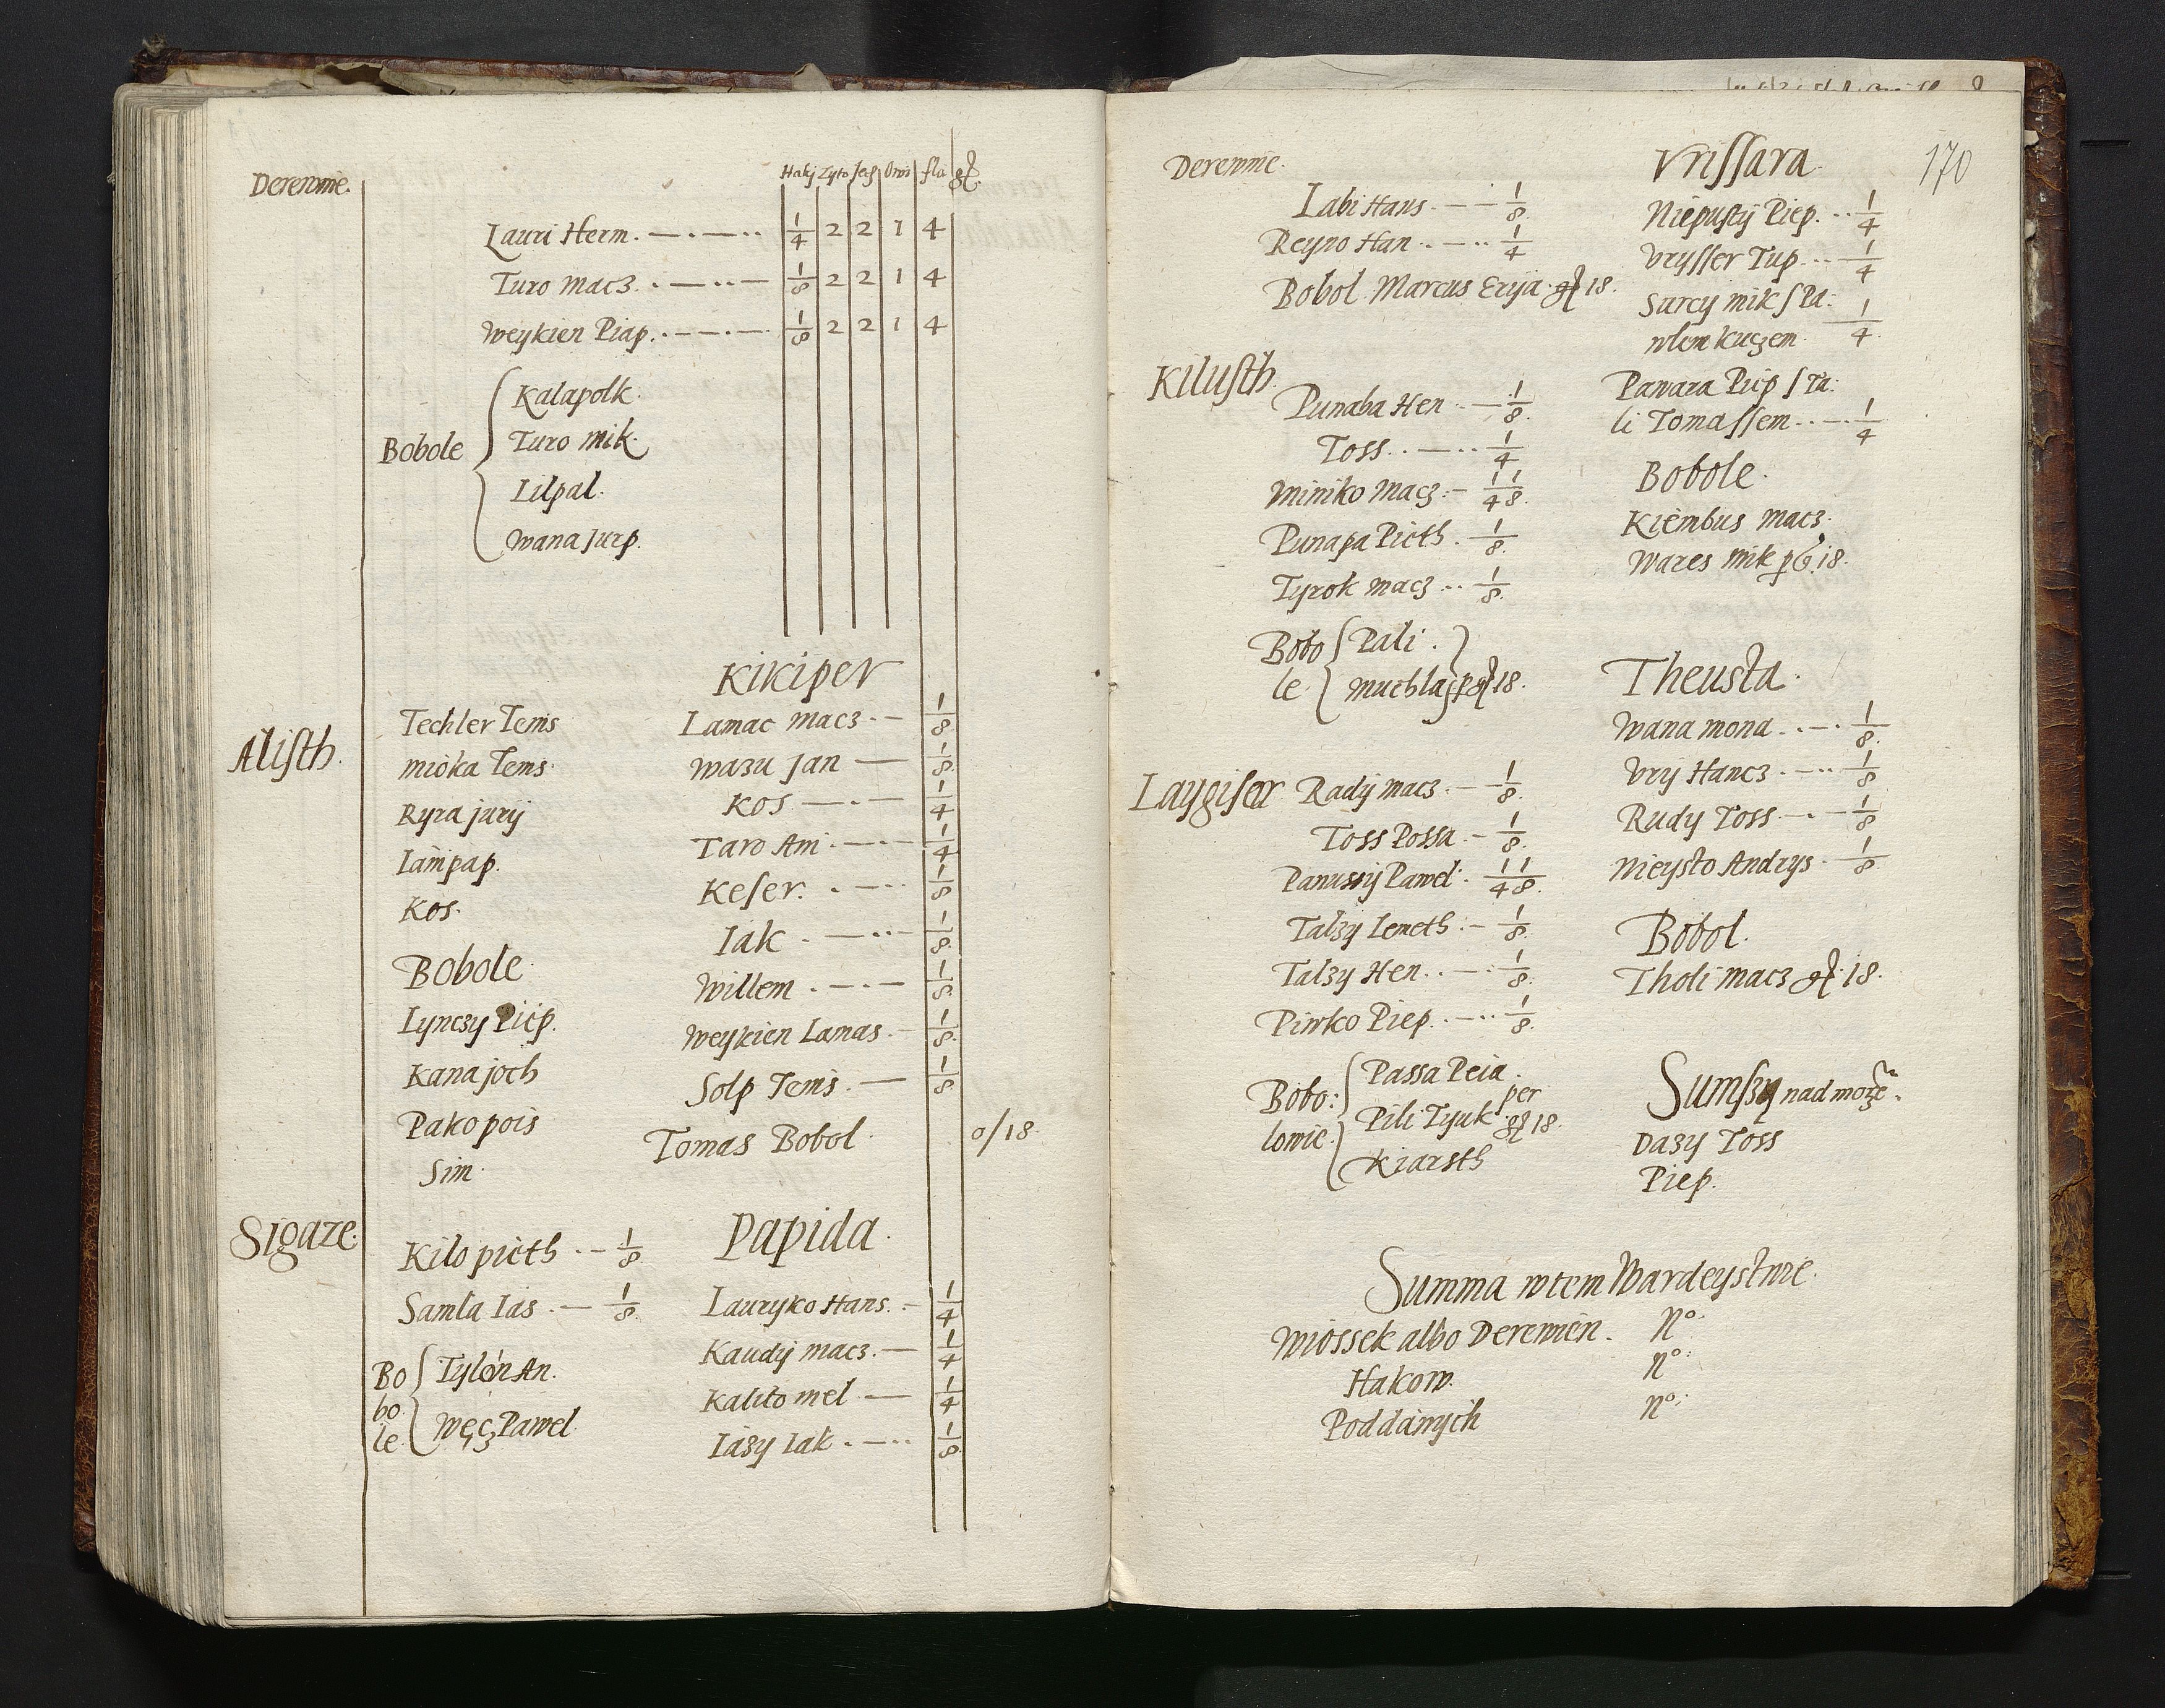 Derewnie.
Hakj Zyto Jecz Owś flu gʀ.
Lauri Herm. 1/4 2 2 1 4
Turo Macz. 1/8 2 2 1 4
Weykien Piap. 1/8 2 2 1 4
Bobole
Kalapolk.
Turo Mik.
Lilpal.
Wana Jurp.
Alisth.
Techler Tems
Mioka Tems.
Ryra jurij
Lampap.
Kos.
Bobole.
Lynczy Piep.
Kana joch
Pako pois
Sim.
Kikiper
Lamac Macz. 1/8
Wazu Jan 1/8
Kos 1/4
Taro Am. 1/4
Keser. 1/8
Iak. 1/8
Willem. 1/8
Weykien Lamas. 1/8
Solp Tems. 1/8
Tomas Bobol. 0/18.
Sigaze.
Kilo pieth 1/8
Samla Ias. 1/8
Bo
bo
le.
Tylon An.
Węcz Pawel
Papida.
Lauryko Hans. 1/4
Kaudij Macz. 1/4
Kalito Mel 1/4
Iazy Iak. 1/8
170
Derewnie.
Labi Hans. 1/8.
Reyno Han. 1/4
Bobol Marcus Erija gʀ 18.
Kilusth.
Punaba Hen. 1/8.
Toss. 1/4
Miniko Macz. 1/4 1/8.
Punapa Pieth. 1/8.
Tyrok Macz. 1/8.
Bobo
le.
Pali.
Muchlas p gʀ 18.
Laygiser
Radij Macz. 1/8.
Toss Possa. 1/8.
Panussij Pawel. 1/4 1/8.
Talzy Lemeth. 1/8.
Talzy Hen. 1/8.
Pinko Piep. 1/8.
Bobo:
lowie.
Passa Peia.
Pili Tyuk per gʀ 18.
Kiarsth
Vrissara.
Niepustij Piep. 1/4
Vrysser Tup. 1/4
Sarcij mik s Pa:
wlem kuczem. 1/4.
Pawara Piep s Pa:
li Tomassem. 1/4
Bobole.
Kiembus Macz.
Wares Mik p G. 18.
Theusta.
Wana Mona. 1/8.
Vrij Hancz. 1/8
Rudy Toss. 1/8
Nieysto Andrys. 1/8
Bobol.
Tholi Macz gʀ. 18.
Sumszy nad morze.
Dazy Toss
Piep.
Summa wtem Wardeystwie.
Wiossek albo Derewien. N°.
Hakow. N°.
Poddanych N°.